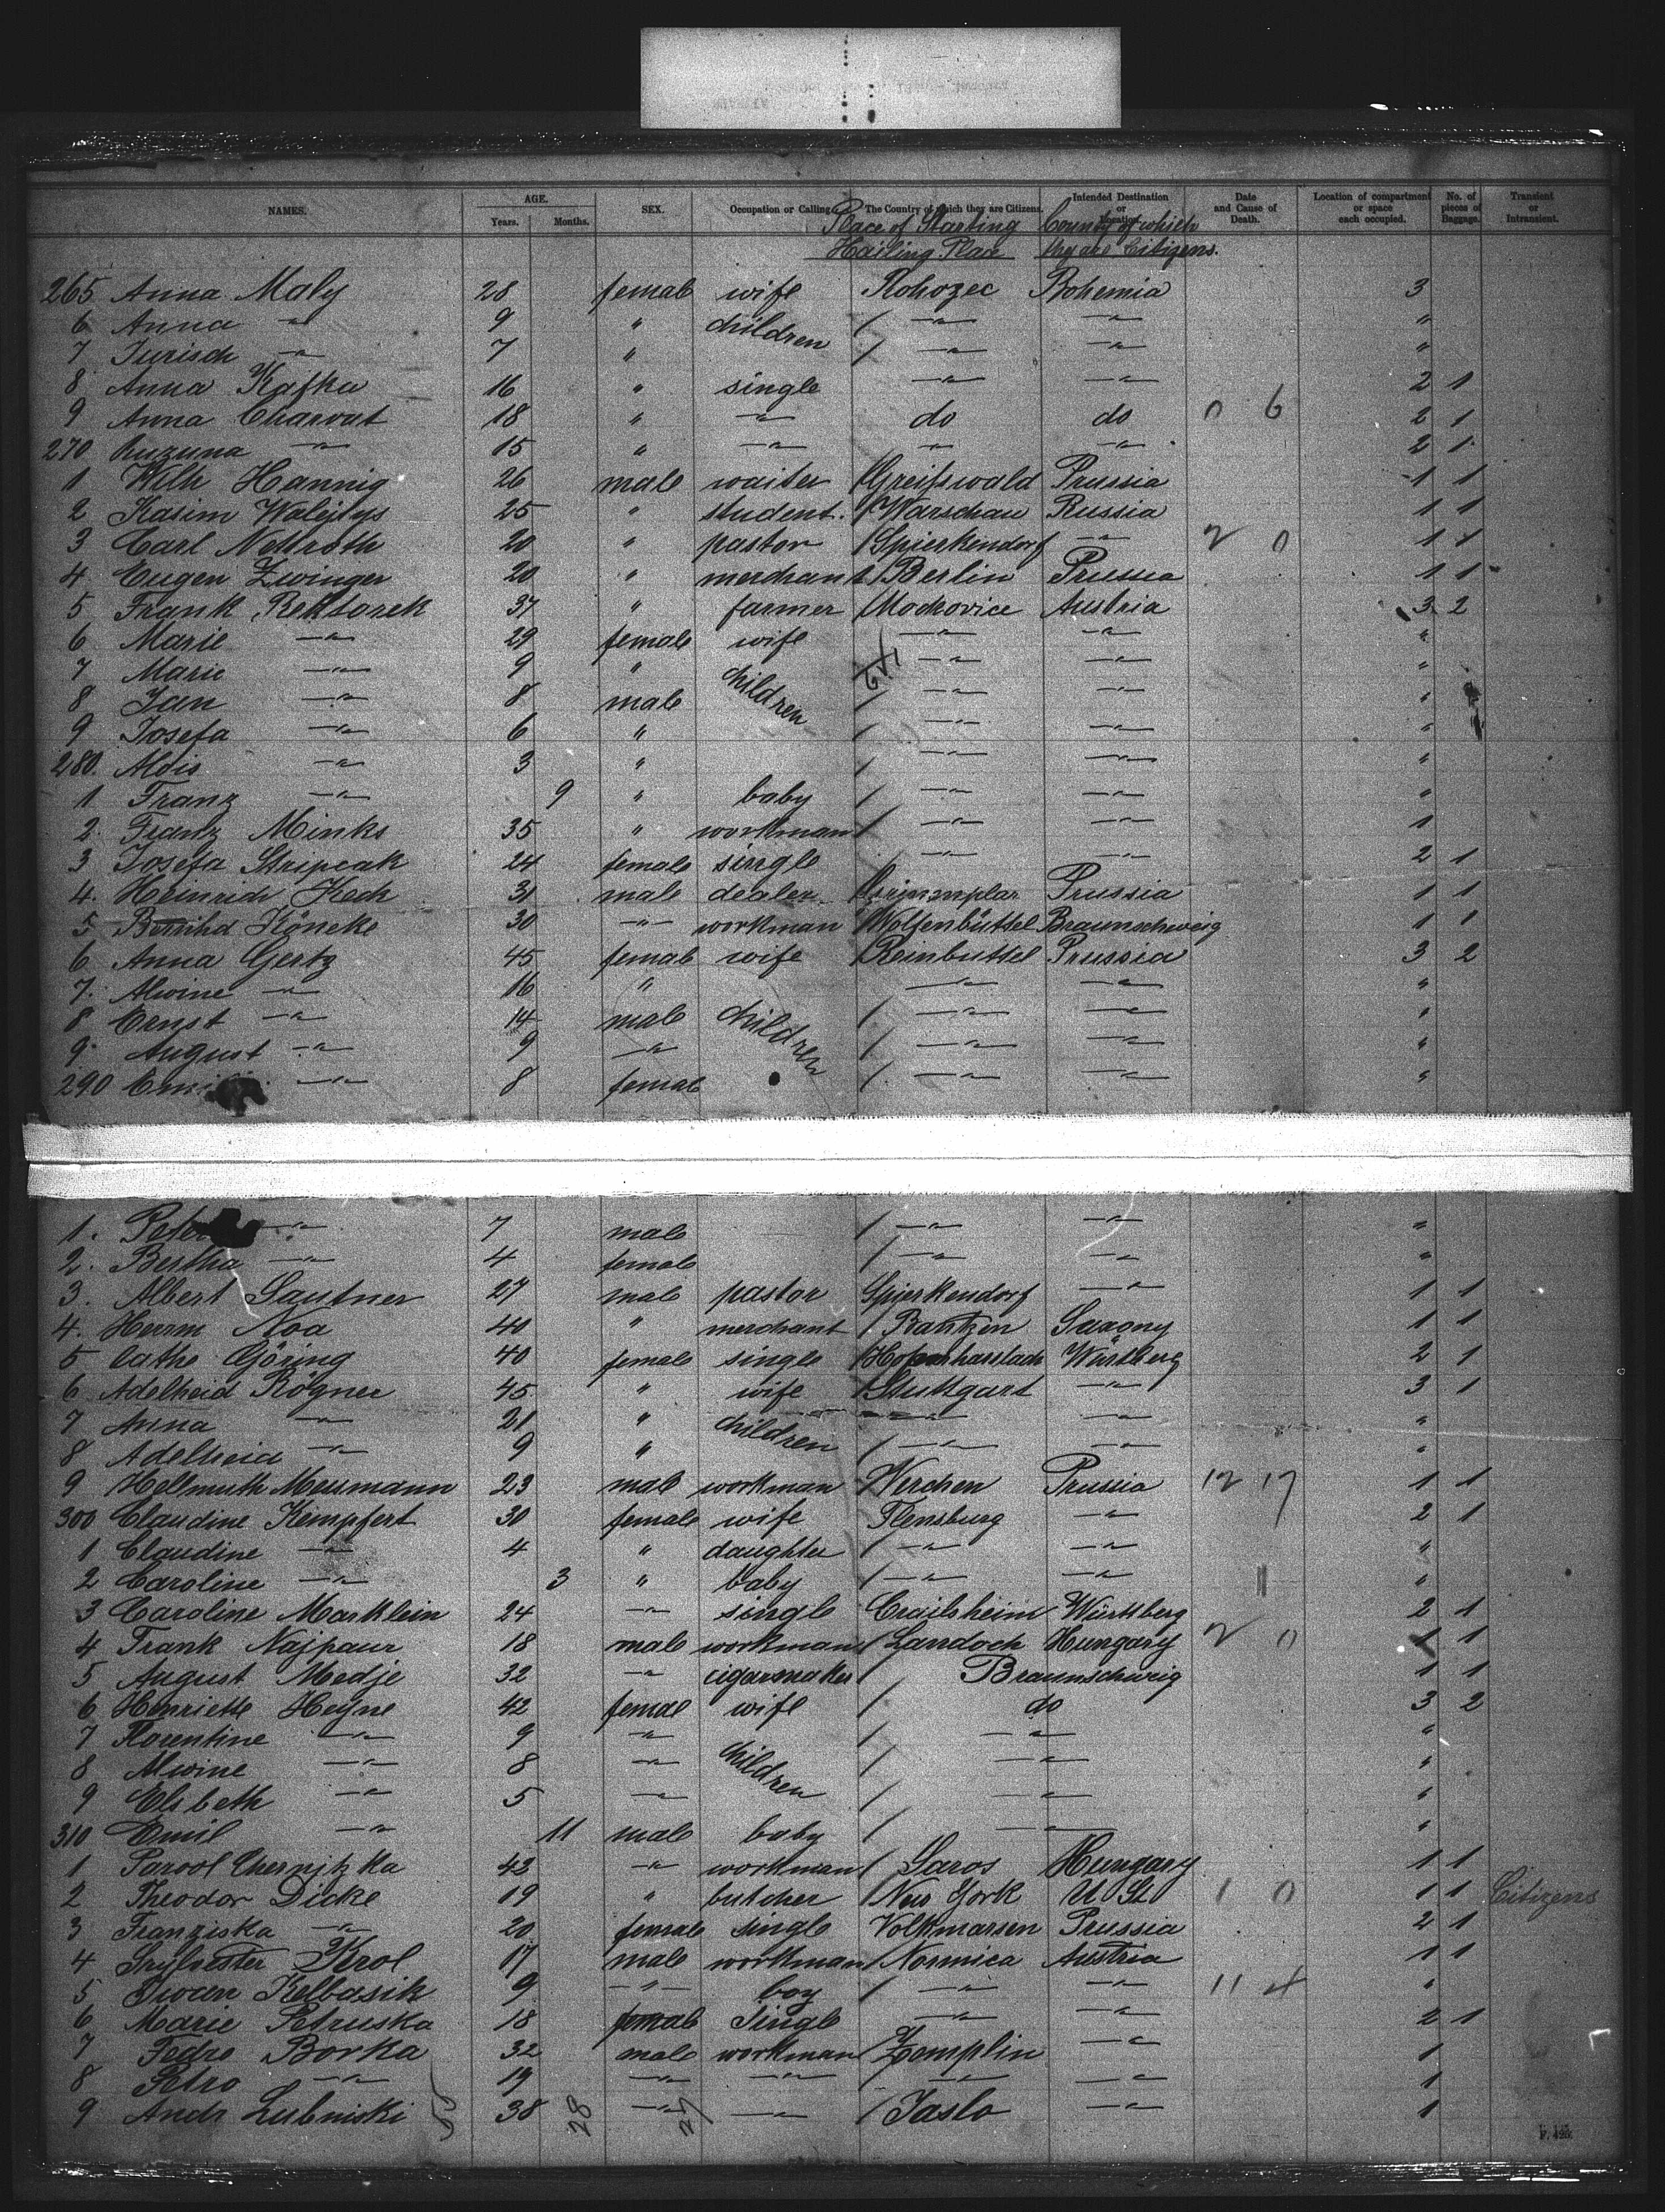 NAMES. AGE. Years. Months. SEX. Occupation or Calling. The Country of which they are Citizens. Intended Destination or Location. Date and Cause of Death. Location of compartment or space each occupied. No. of pieces of Baggage. Transient or Intransient.
Place of Starting Country of which
Hailing Place they are Citizens.
265 Anna Maly 28 female wife Rohozec Bohemia 3
6 Anna " 9 " children / " " "
7 Jurisch " 7 " / " " "
8 Anna Kafka 16 " single " " 2 1
9 Anna Charvat 18 " " do do 0 6 2 1
270 Ruzuna " 15 " " " " 2 1
1 Wilh Hannig 26 male waiter / Greifswald Prussia 1 1
2 Kasim Walejtys 25 " student. / Warschau Russia 1 1
3 Carl Nehroth 20 " pastor / Spierkendorf " 2 0 1 1
4 Eugen Zwinger 20 " merchant / Berlin Prussia 1 1
5 Frank Rektorek 37 " farmer / Mockovice Austria 3 2
6 Marie " 29 female wife " " "
7 Marie " 9 " children " " "
8 Jan " 8 male / " " "
9 Josefa " 6 " / " " "
280. Alois " 3 " / " " "
1 Franz " 9 " baby / " " "
2. Frantz Minks 35 " workman / " " 1
3 Josefa Stripcak 24 female single " " 2 1
4. Heinrich Kech 31 male dealer Prussia 1 1
5 Köneke 30 " workman / Wolfenbüttel Braunschweig 1 1
6 Anna Gertz 45 female wife / Reinbüttel Prussia 3 2
7. Alwine " 16 " " " "
8 Ernst " 14 male children / " " "
9. August " 9 " / " " "
290 " 8 female / " " "
1. Peter " 7 male / " " "
2. Bertha " 4 female / " " "
3. Albert Sautner 27 male pastor Spierkendorf " 1 1
4. Herm Noa 40 " merchant / Bautzen Saxony 1 1
5 Cathe Göring 40 female single / Württberg 2 1
6 Adelheid Rögner 45 " wife / Stuttgart " 3 1
7 Anna " 21 " children " " "
8 Adelheid " 9 " / " " "
9 Hellmuth Mesmann 23 male workman Werchen Prussia 12 17 1 1
300 Claudine Kempfert 30 female wife Flensburg " 2 1
1 Claudine " 4 " daughter / " " "
2 Caroline " 3 " baby / " " "
3 Caroline Marklein 24 " single Crailsheim Württberg 2 1
4 Frank Najpaur 18 male workman / Landoch Hungary 2 0 1 1
5 August Medje 32 " cigarmaker / Braunschweig 1 1
6 Henriette Heyne 42 female wife / do 3 2
7 Florentine " 9 " children / " "
8 Alwine " 8 " / " "
9 Elsbeth " 5 " / " "
310 Emil " 11 male baby / " "
1 Pawol Chernitzka 42 " workman / Saros Hungary 1 1
2 Theodor Dicke 19 " butcher / New York U St 1 0 1 1 Citizens
3 Franziska " 20 female single Volkmarsen Prussia 2 1
4 Sylvester Krol 17 male workman / Normica Austria 1 1
5 Iwan Kelbasik 9 " boy / " " 11 4 "
6 Marie Petruska 18 female Single " " 2 1
7 Fedro Borka 32 male workman Zemplin " 1
8 Petro " 19 " " / " " 1
9 Andr Lubniski 38 28 " 27 " / Jaslo " 1